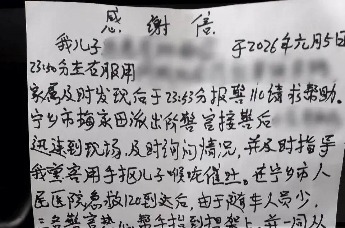 感谢信
我儿子 于2026年六月5日
23:50分左右服用
家属及时发现后于23:53分报警110请求帮助。
宁乡市梅家田派出所警官接警后
迅速到现场,及时询问情况,并及时指导
我家客用手抠儿子喉咙催吐。在宁乡市人
民医院急救120到达后,由于随车人员少,
帮手抬到担架上,并一同从